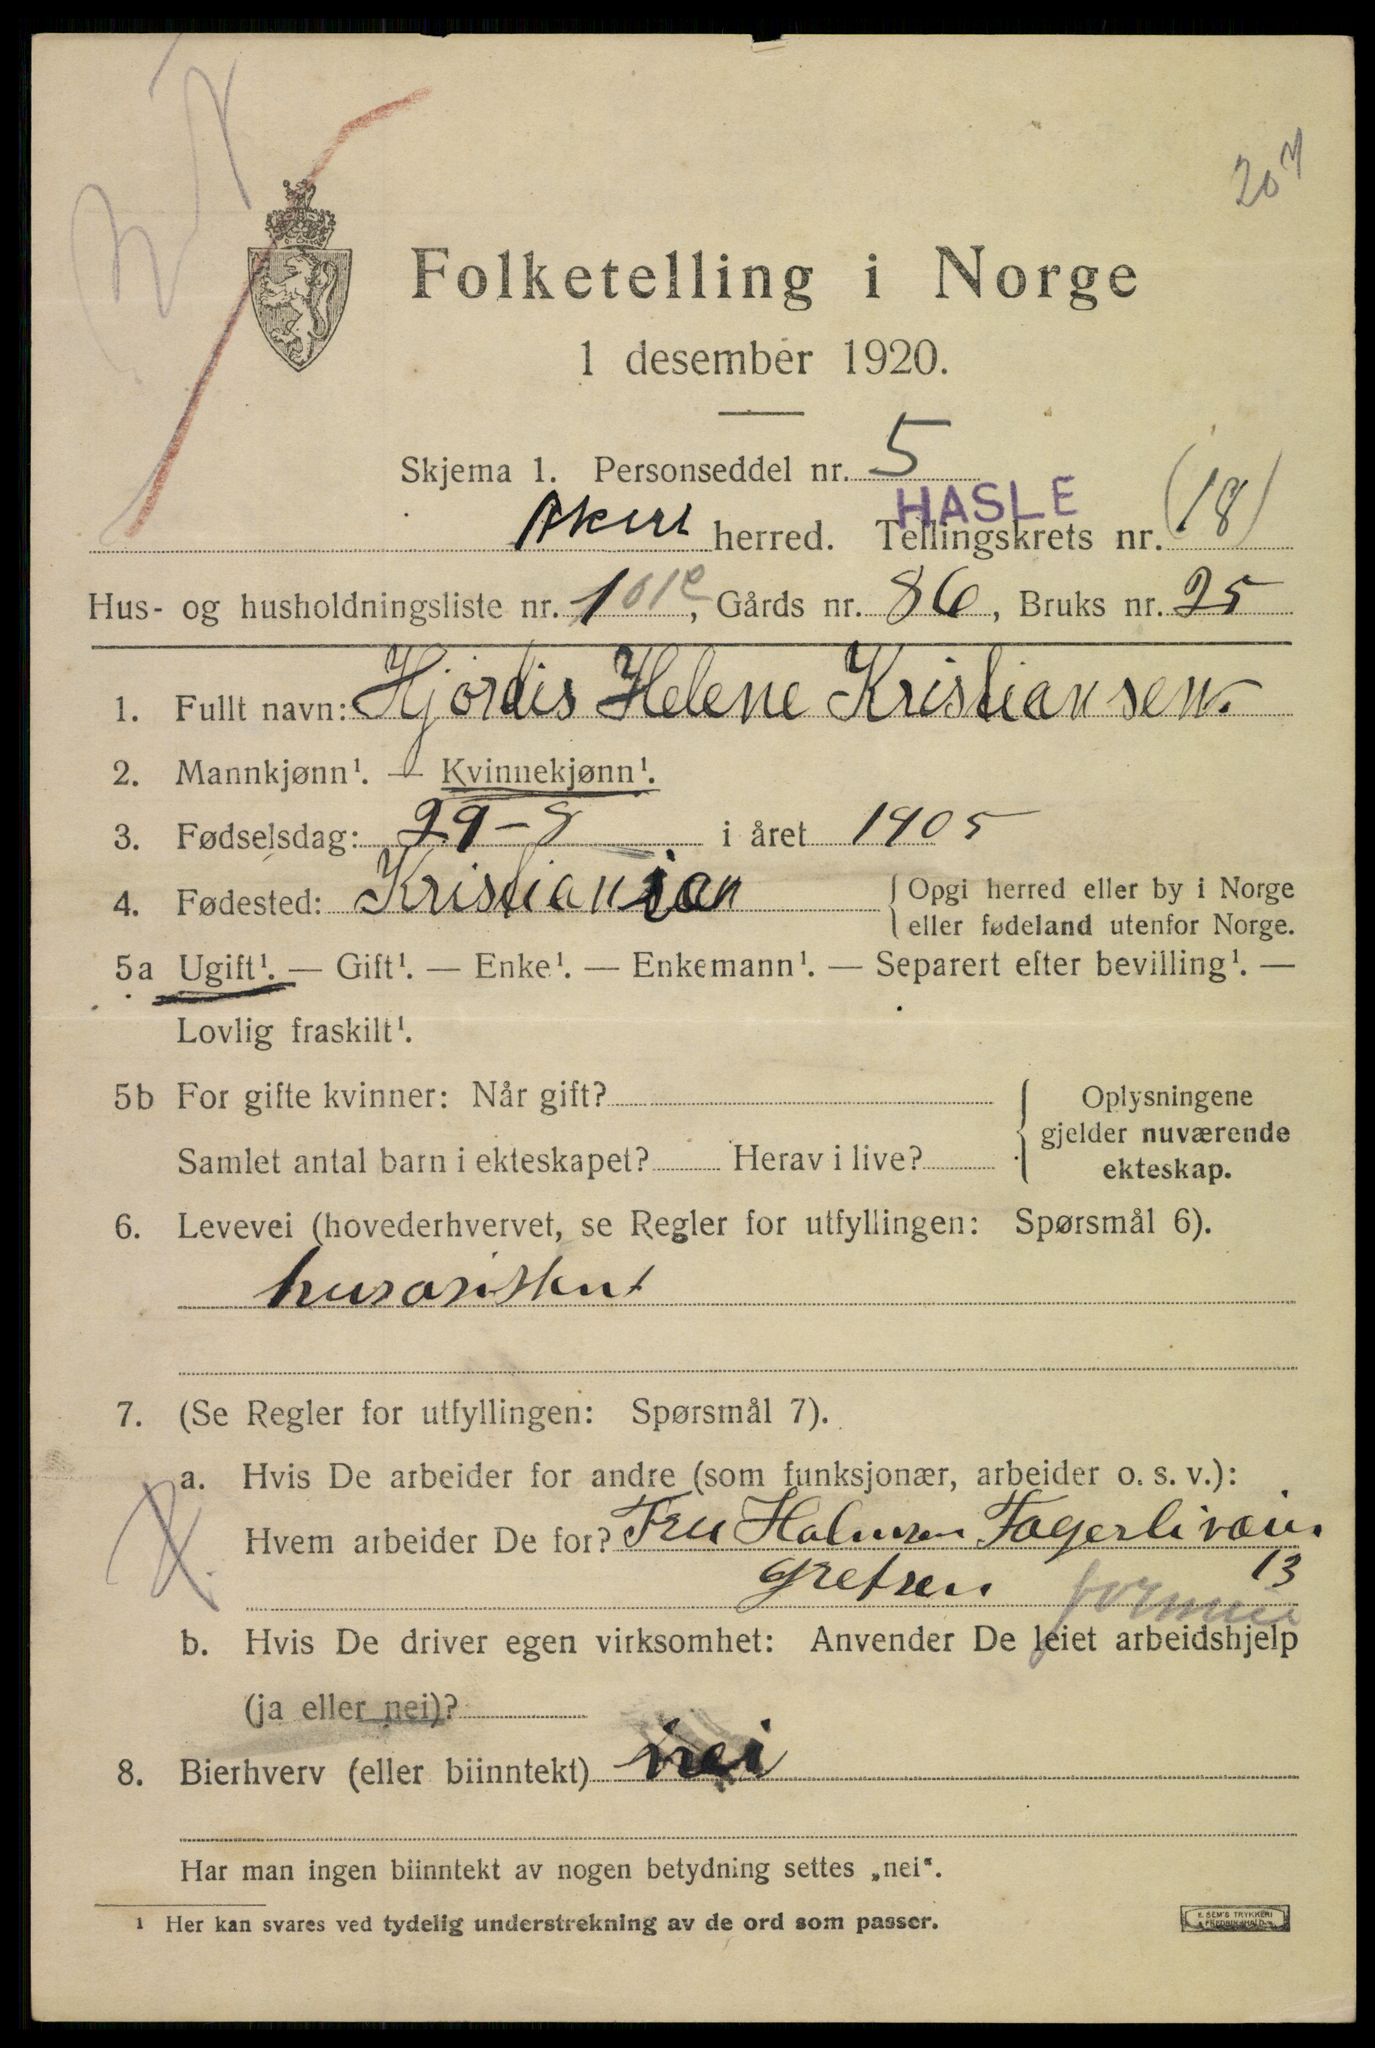 207
Folketelling i Norge
1 desember 1920.
Skjema 1. Personseddel nr. 5
HASLE
Akers herred. Tellingskrets nr. (18)
Hus- og husholdningsliste nr. 1, Gårds nr. 86, Bruks nr. 25
1. Fullt navn: Hjørdis Helene Kristiansen.
2. Mannkjønn¹. — Kvinnekjønn¹.
3. Fødselsdag: 29-8 i året 1905
4. Fødested: Kristianian {Opgi herred eller by i Norge
eller fødeland utenfor Norge.
5a Ugift¹. — Gift¹. — Enke¹. — Enkemann¹. — Separert efter bevilling¹. —
Lovlig fraskilt¹.
5b For gifte kvinner: Når gift? { Oplysningene
gjelder nuværende
Samlet antal barn i ekteskapet? Herav i live?
ekteskap.
6. Levevei (hovederhvervet, se Regler for utfyllingen: Spørsmål 6).
husasistent
7. (Se Regler for utfyllingen: Spørsmål 7).
a. Hvis De arbeider for andre (som funksjonær, arbeider o. s. v.):
Hvem arbeider De for? Fru Holmsen Fagerliveien
13
Grefsen
b. Hvis De driver egen virksomhet: Anvender De leiet arbeidshjelp
(ja eller nei)?
8. Bierhverv (eller biinntekt) nei
Har man ingen biinntekt av nogen betydning settes „nei“.
¹ Her kan svares ved tydelig understrekning av de ord som passer.
E. SEM'S TRYKKERI
FREDRIKSHALD